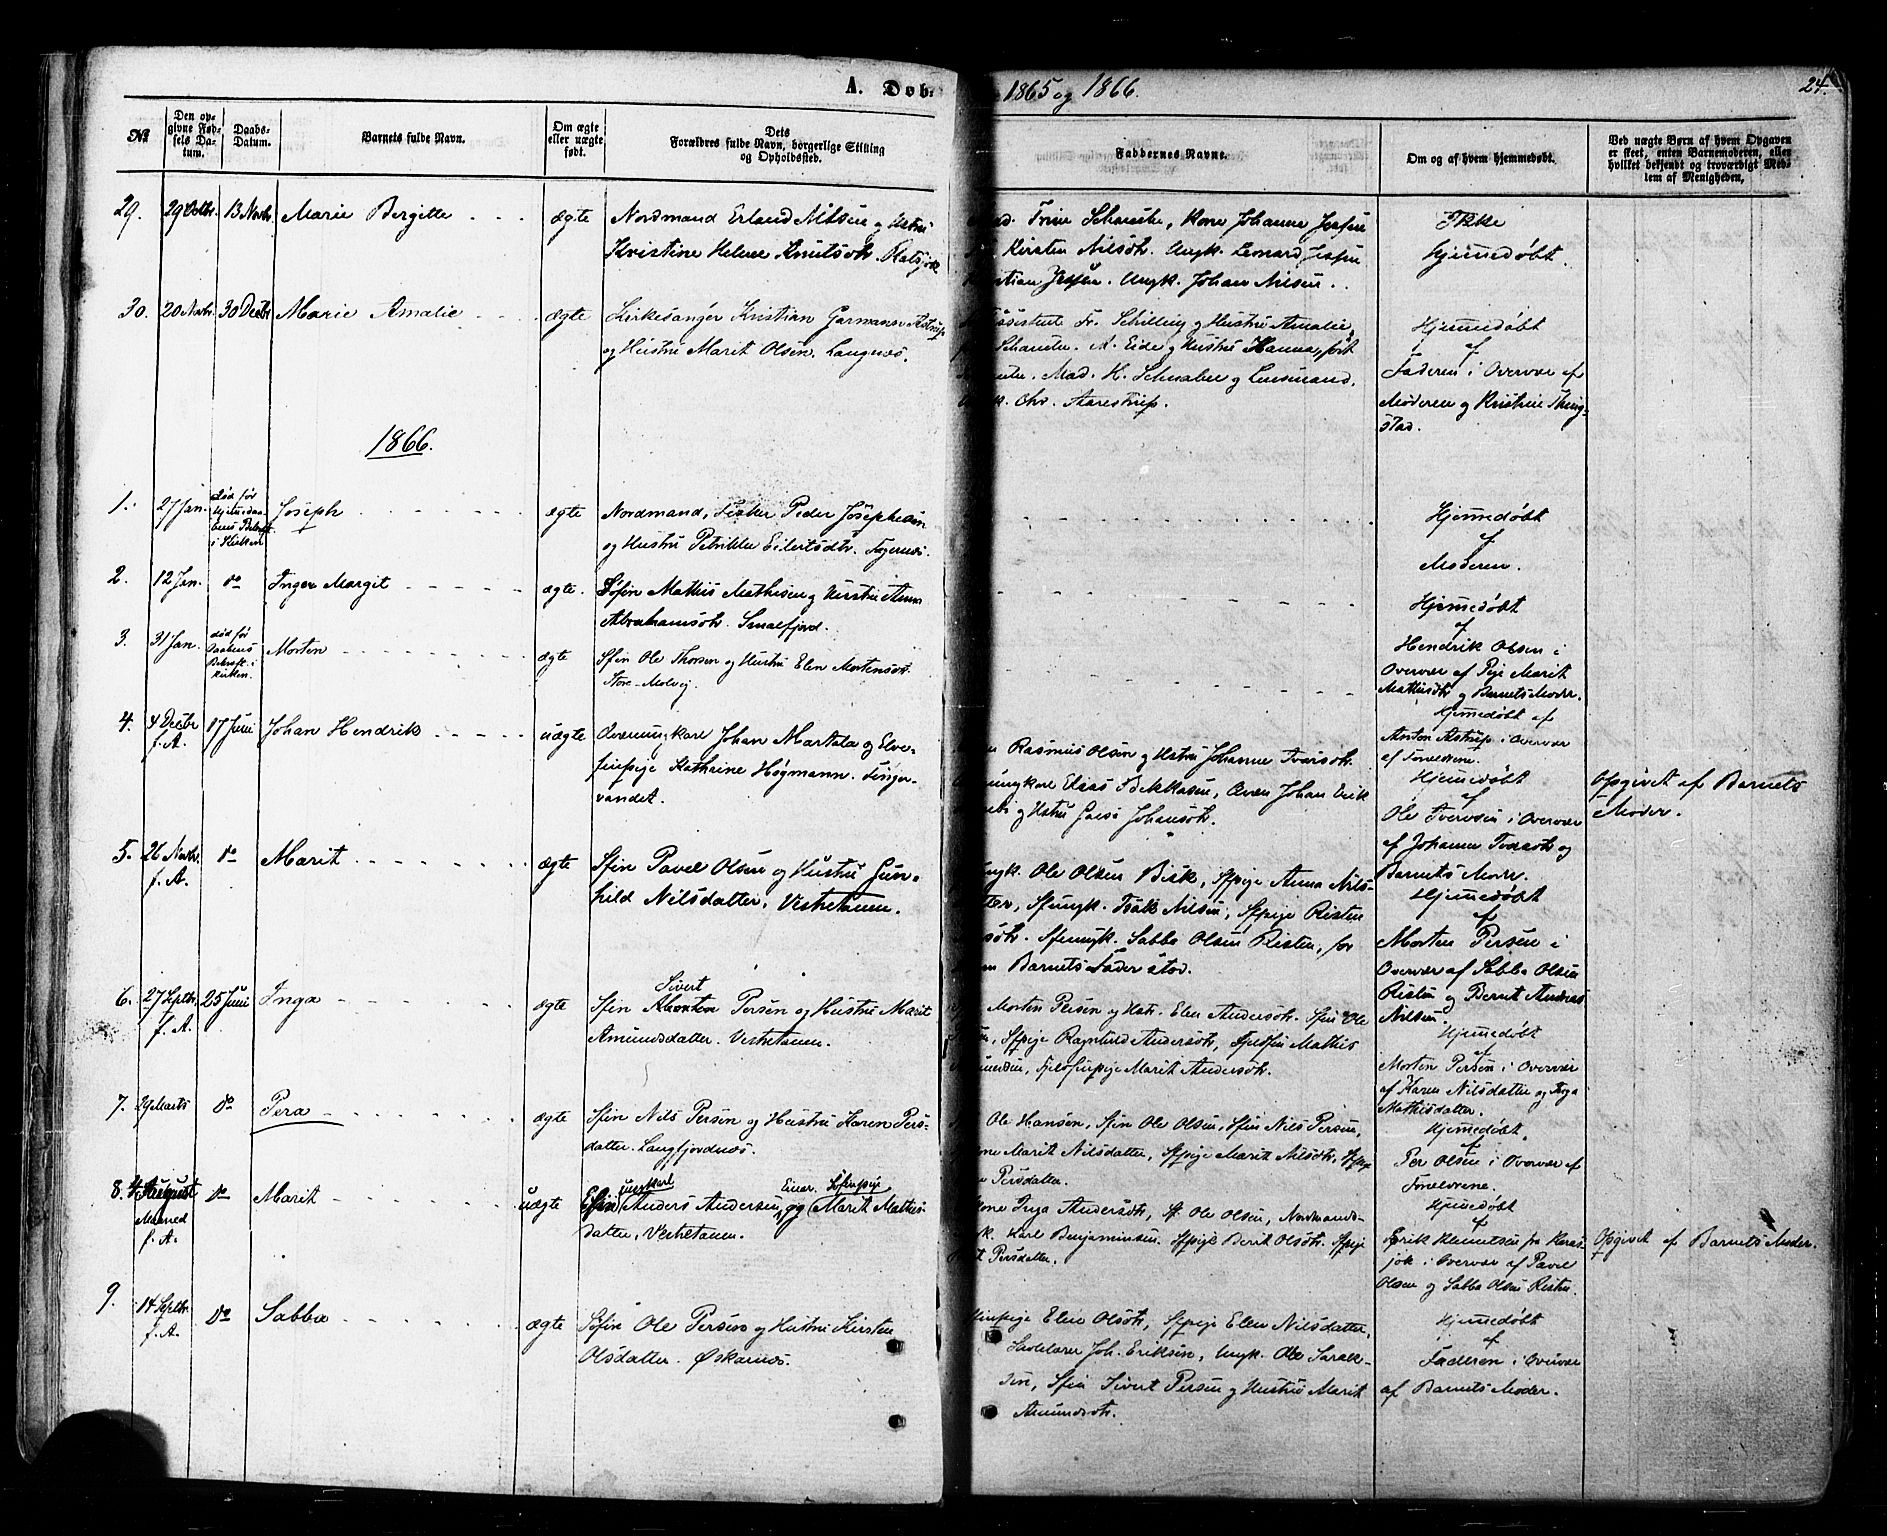 A. Døb.
1865 og 1866.
24.
№
Den opgivne Fødsels Datum.
Daabs-Datum.
Barnets fulde Navn.
Om ægte eller uægte født.
Dets Forældres fulde Navn, borgerlige Stilling og Opholdssted.
Faddernes Navne.
Om og af hvem hjemmedøbt.
Ved uægte Børn af hvem Opgaven er skeet, enten Barnemoderen, eller hvilket bekjendt og troværdigt Medlem af Menigheden.
29. 29 Octbr. 13 Novbr. Marie Bergitte ægte
Nordmand Erland Nilsen og Hustru
Kristine Helene Knutsdtr.
Trine Schanche, Kone Johanna Jessen
Kirsten Nilsdtr. Ungk. Leonard Jessen
Jessen. Ungk. Johan Nilsen.
Ikke
Hjemmedøbt.
30. 20 Novbr. 30 Decbr. Marie Amalie ægte
Kirkesanger Kristian Garmann Astrup
og Hustru Marit Olsen. Langnæs.
Fr. Schilling og Hustru Amalie,
Schanche. A. Eide og Hustru Hanna, født
Mad. H. Schnabel og Lensmand
Chr. Aarestrup.
Hjemmedøbt
af
Faderen i Overvær af
Moderen og Kristine
stad.
1866.
1. 27 Jan. død før Joseph ægte
i Kirken
Nordmand, Fisker Peder Josephsen
og Hustru Petrikke Eilertsdtr.
Hjemmedøbt
af
Moderen.
2. 12 Jan. do Inger Margit ægte.
Søfin Mathis Mathisen og Hustru Anna
Abrahamsdtr. Smalfjord.
Hjemmedøbt
af
Hendrik Olsen i
Overvær af Pige Marit
Mathisdtr og Barnets Moder.
3. 31 Jan. død før Daabens Bekræft. i Kirken. Morten ægte
Sfin Ole Thorsen og Hustru Elen Mortensdtr.
Store-Molvig.
Hjemmedøbt af
Anton Astrup i Overvær
af Forældrene.
4. 4 Decbr f. A. 17 Juni Johan Hendrik uægte
Johan Martala og Elve-
finpige Kathrine Høgmann.
vandet.
Rasmus Olsen og Hustru Johanne Ivarsdtr.
Johan Erik
og Hustru Johansdtr.
Hjemmedøbt
af
Ole Iversen i Overvær
af Johanne Ivarsdtr og
Barnets Moder.
Opgivet af Barnets
Moder.
5. 26 Novbr. f. A. do Marit ægte
Sfin Pavel Olsen og Hustru Gun-
hild Nilsdatter, Vestretanen.
Ole Olsen Bisk, Sfpige Anna Nils-
Sfungk. Isak Nilsen, Sfpige Risten
Sfungk. Sabba Olsen Risten, for
Barnets Fader stod.
Hjemmedøbt
af
Morten Persen i
Overvær af Sabba Olsen
Risten og Bernt Andreas
Nilsen.
6. 27 Septbr. f. A. 25 Juni Inga ægte
Sivert
Sfin Morten Persen og Hustru Marit
Amundsdatter. Vestretanen.
Morten Persen og Hstr. Elen Andersdtr. Sfin Ole
Sfpige Ragnhild Andersdtr, Fjeldfin Mathis
Fjeldfinpige Marit Andersdtr.
Hjemmedøbt
af
Morten Persen i Overvær
af Karen Nilsdatter og Inga
Mathisdatter.
7. 29 Marts do Pera ægte
Sfin Nils Persen og Hustru Karen Pers-
datter. Langfjordnæs.
Ole Hansen, Sfin Ole Olsen, Sfin Nils Persen,
Marit Nilsdatter, Sfpige Marit Nilsdtr, Sfpige
Persdatter.
Hjemmedøbt
af
Per Olsen i Overvær af
Forældrene.
8. August Maaned f. A. do Marit uægte
ungkarl Søfinpige
Anders Andersen, og Marit Mathis-
datter, Vestretanen.
Inga Andersdtr, Sf. Ole Olsen, Nordmands-
Karl Benjaminsen. Sfpige Berit Olsdtr. Sfpige
Persdatter.
Hjemmedøbt
af
Erik Klemetsen fra Karas-
jok i Overvær af Pavel
Olsen og Sabba Olsen Risten.
Opgivet af Barnets Moder.
9. 14 Septbr. f. A. do Sabba ægte
Søfin Ole Persen og Hustru Kirsten
Olsdatter. Øskarnæs.
Elen Olsdtr, Sfpige Elen Nilsdatter,
Skolelærer Joh. Eriksen, Ungk. Ole Sarak-
sen, Sfin Sivert Persen og Hustru Marit
Amundsdtr.
Hjemmedøbt
af
Faderen i Overvær
af Barnets Moder.